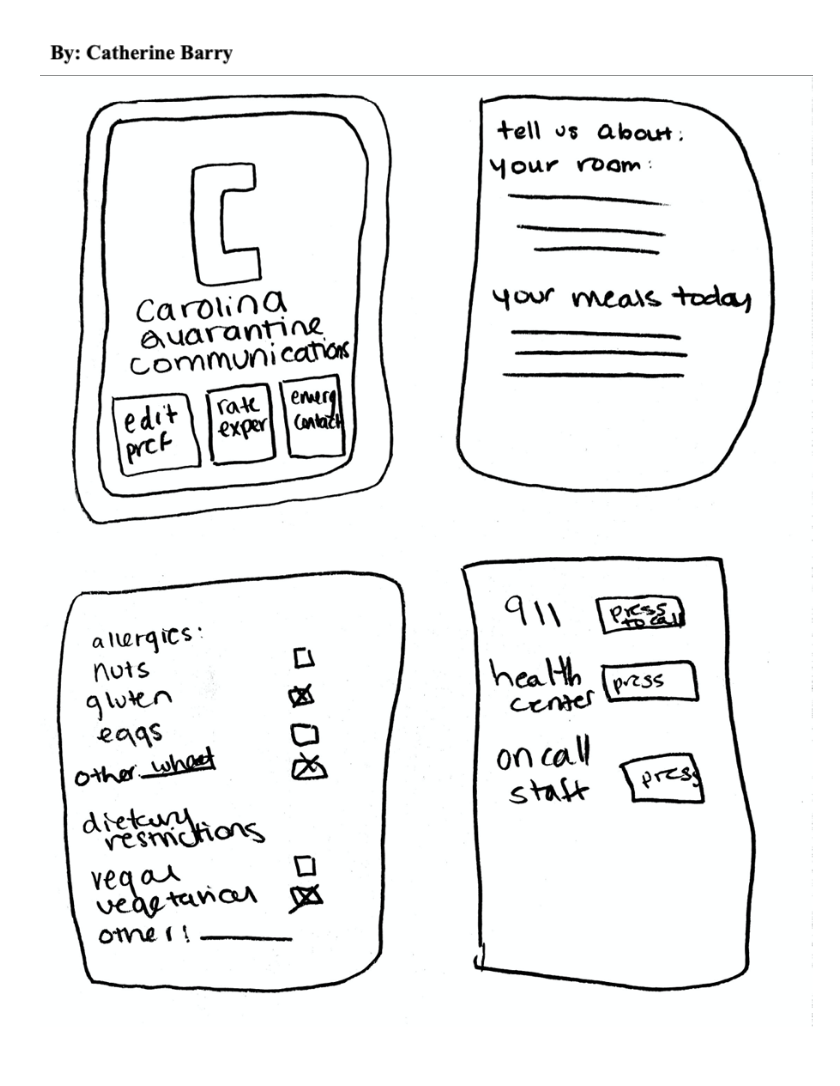 By: Catherine Barry
C
Carolina
Quarantine
Communications
edit
pref
rate
exper
emerg
contact
tell us about:
your room:
your meals today
allergies:
nuts
gluten
eggs
other: wheat
dietary
restrictions
vegan
vegetarian
other:
911
press
to call
health
center
press
on call
staff
press